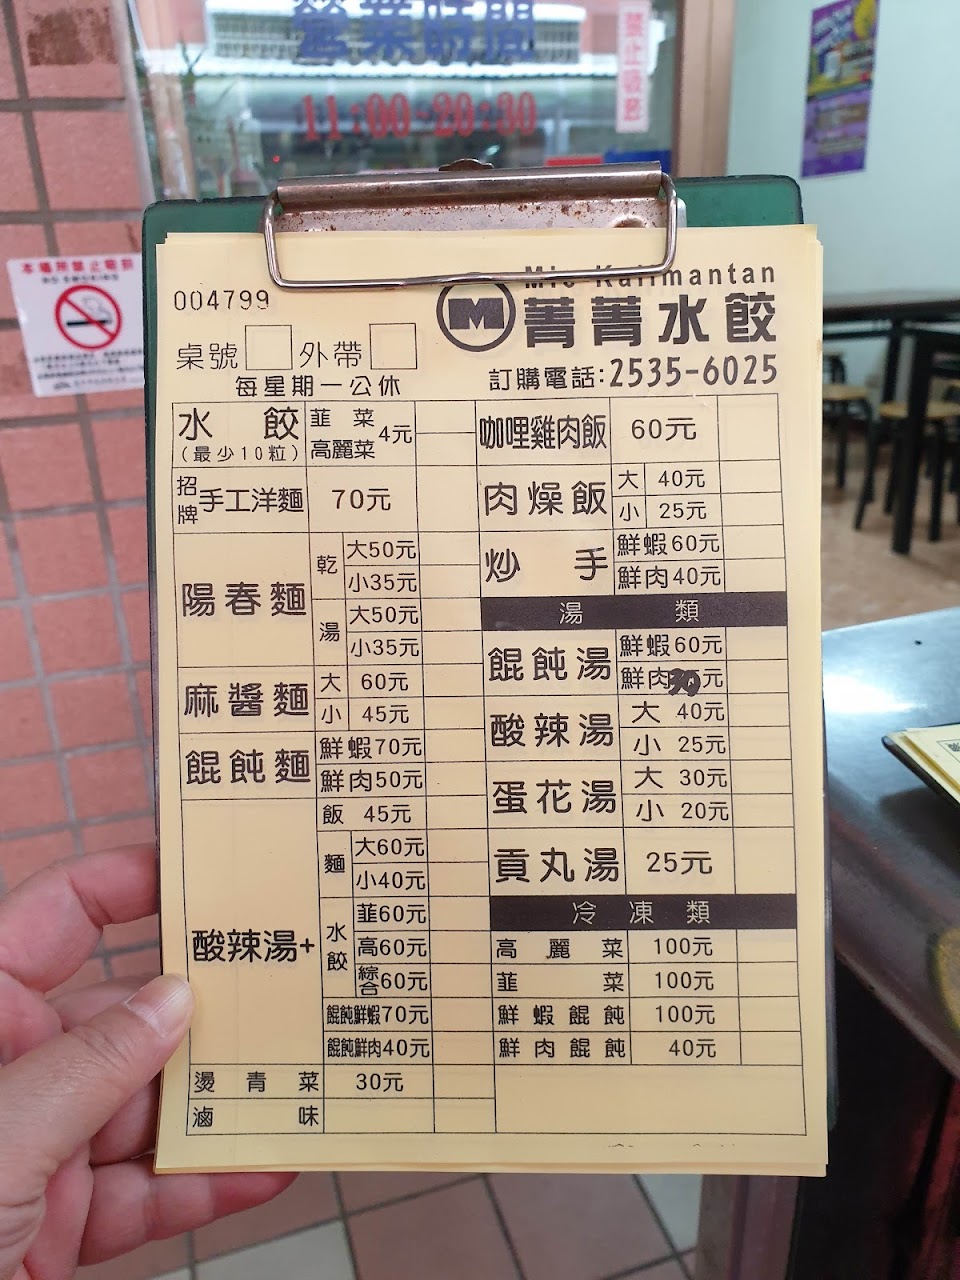 營業時間
11:00-20:30
禁止吸菸
本場所禁止吸菸
NO SMOKING
004799
Mie Kalimantan
M
菁菁水餃
桌號 外帶
每星期一公休
訂購電話:2535-6025
水餃 (最少10粒) 韮菜 高麗菜 4元
招牌 手工洋麵 70元
陽春麵
乾 大50元
小35元
湯 大50元
小35元
麻醬麵 大 60元
小 45元
餛飩麵 鮮蝦70元
鮮肉50元
酸辣湯+
飯 45元
麵 大60元
小40元
水餃 韮60元
高60元
綜合60元
餛飩鮮蝦70元
餛飩鮮肉40元
燙青菜 30元
滷味
咖哩雞肉飯 60元
肉燥飯 大 40元
小 25元
炒手 鮮蝦60元
鮮肉40元
湯類
餛飩湯 鮮蝦60元
鮮肉30元
酸辣湯 大 40元
小 25元
蛋花湯 大 30元
小 20元
貢丸湯 25元
冷凍類
高麗菜 100元
韮菜 100元
鮮蝦餛飩 100元
鮮肉餛飩 40元